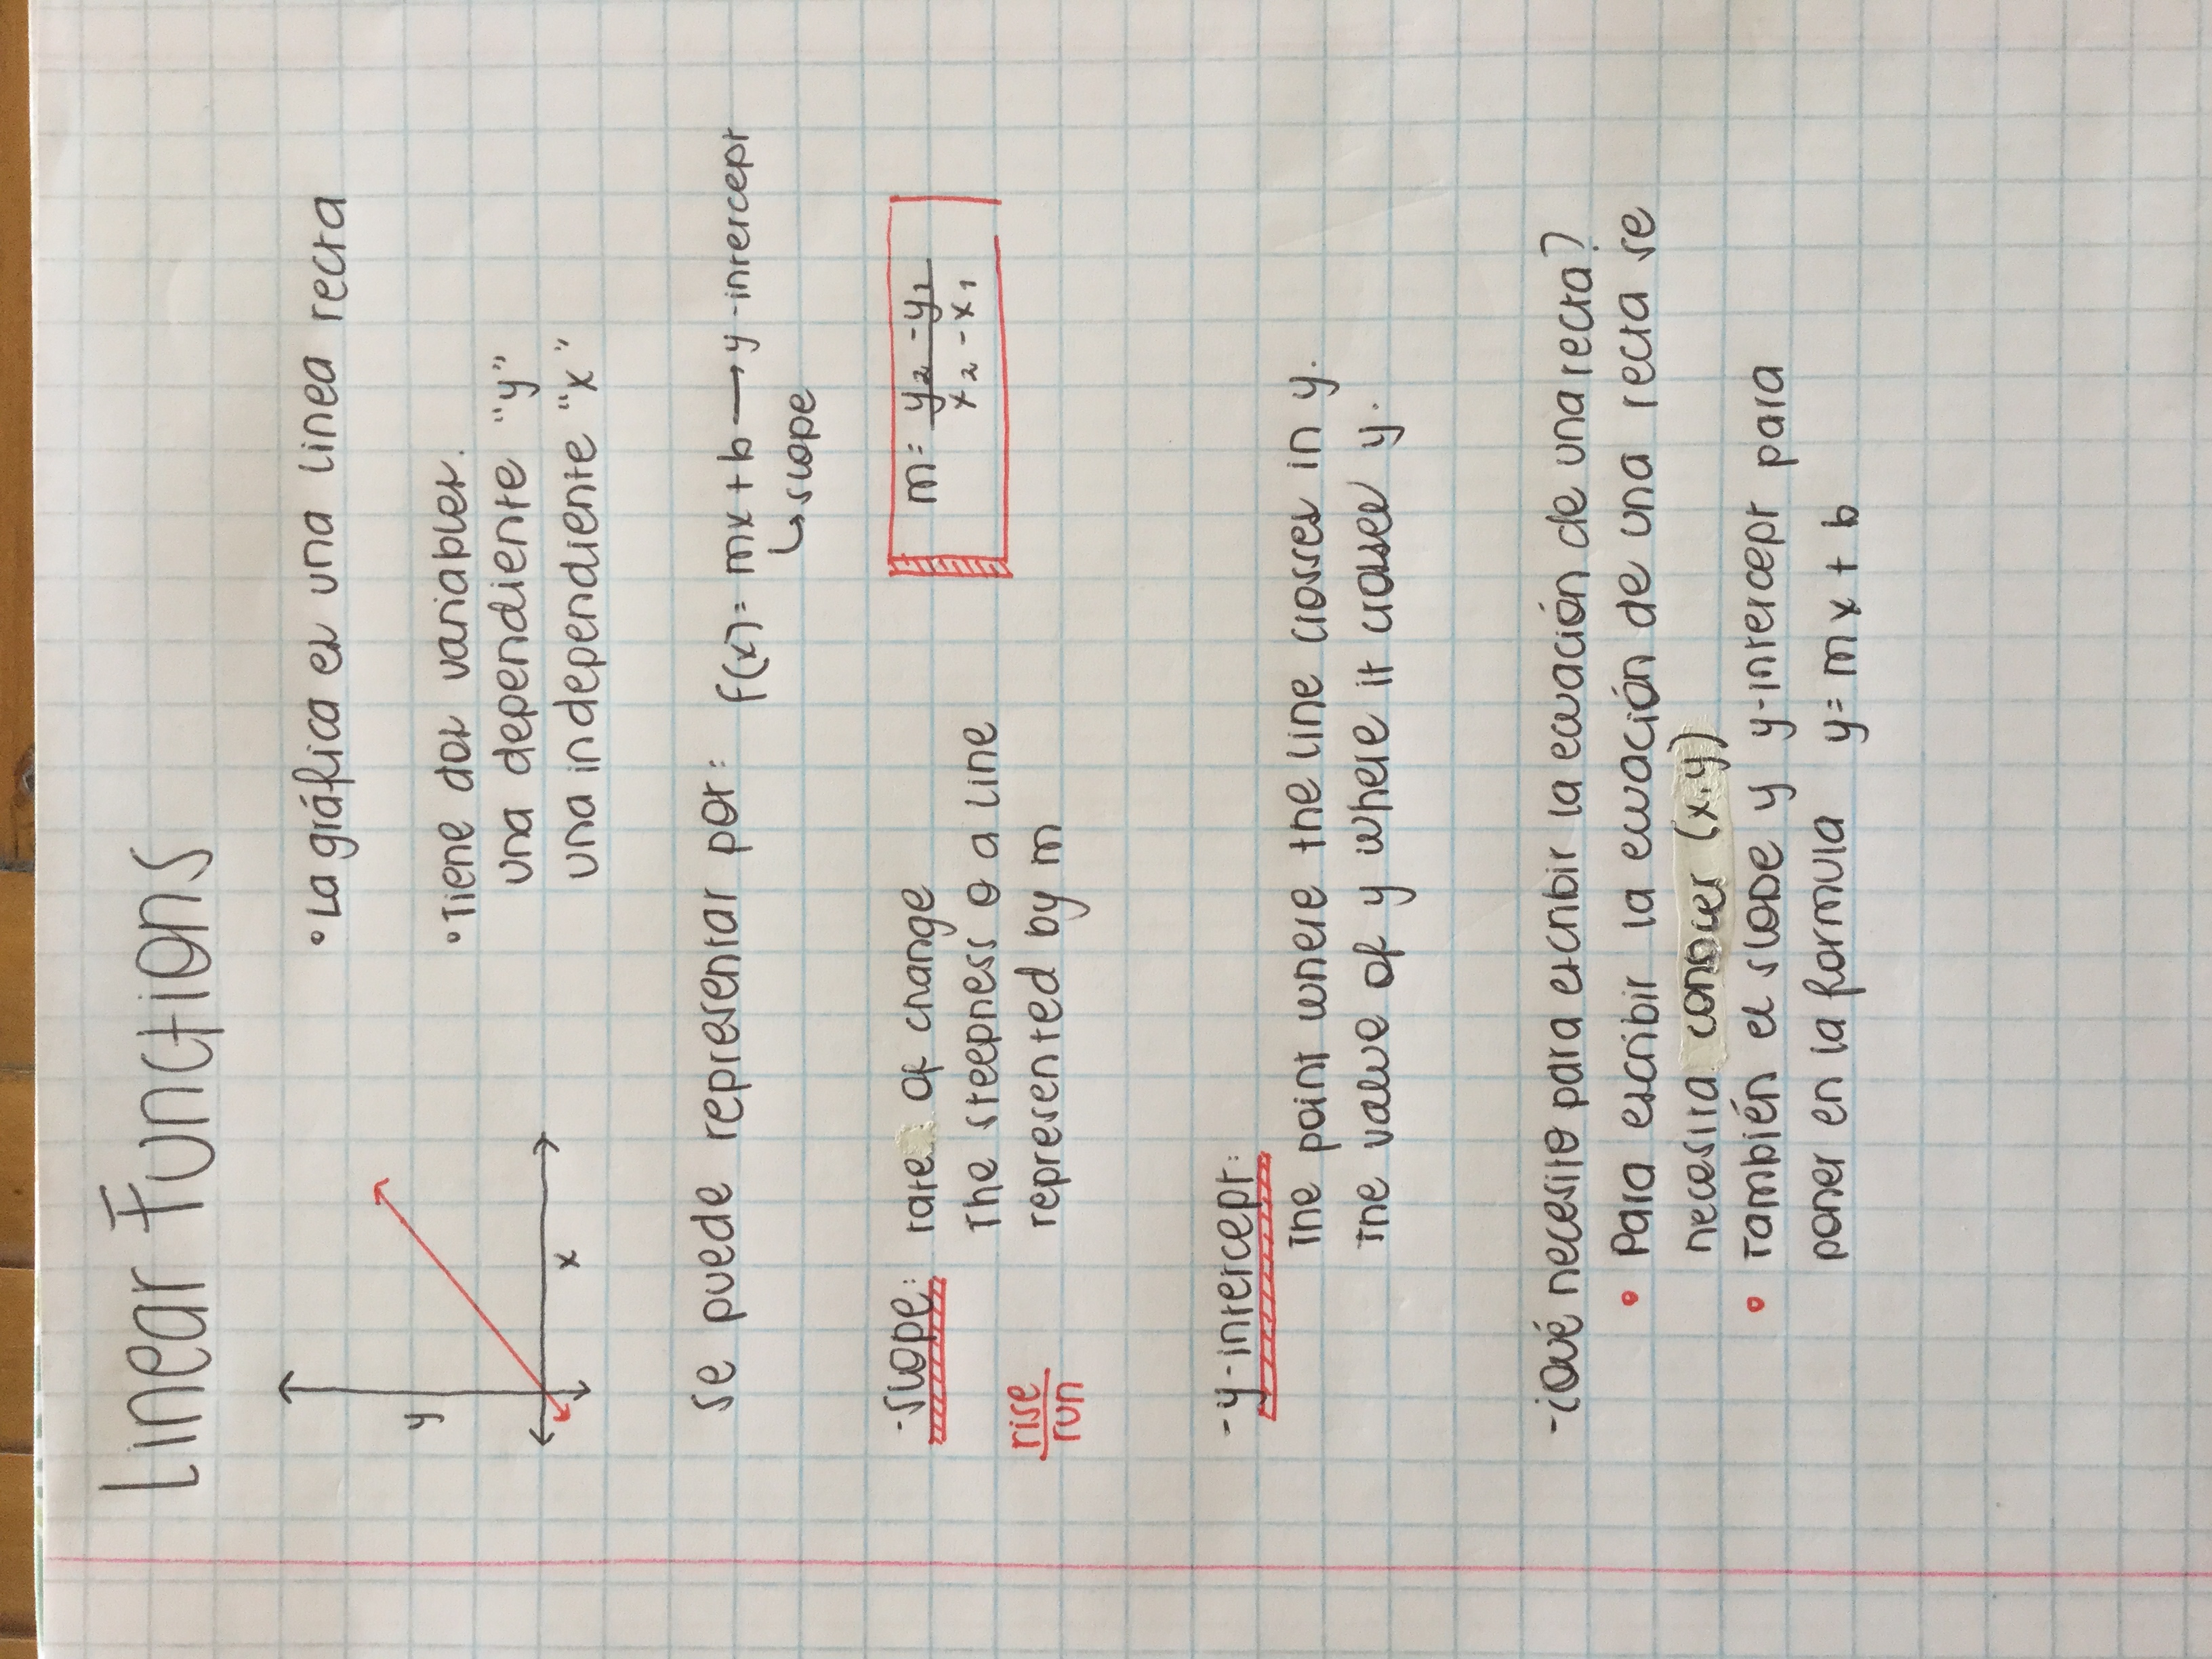 Linear Functions
• La gráfica es una linea recta
y
x
• Tiene dos variables.
una dependiente "y"
una independiente "x"
se puede representar por: f(x) = mx + b → y-intercept
↳ slope
-slope: rate of change
m = y₂ - y₁ / x₂ - x₁
The steepness o a line
represented by m
rise
run
- y-intercept:
The point where the line crosses in y.
The value of y where it croses y.
-¿Qué necesito para escribir la ecuación de una recta?
• Para escribir la ecuación de una recta se
necesita conocer (x,y)
• También el slope y y-intercept para
poner en la formula y = mx + b